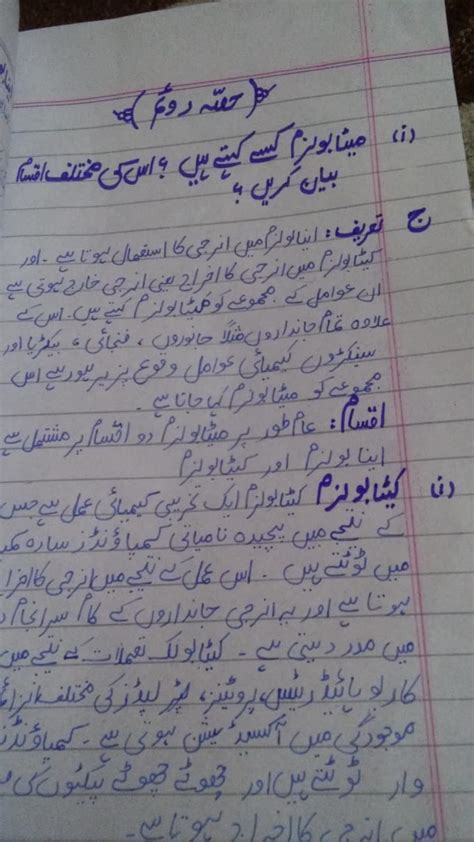 ﴿ حصّہ دوئم ﴾
(i) میٹابولزم کسے کہتے ہیں ؟ اس کی مختلف اقسام
بیان کریں ؟
ج تعریف : اینابولزم میں انرجی کا استعمال ہوتا ہے ۔ اور
کیٹابولزم میں انرجی کا اخراج یعنی انرجی خارج ہوتی ہے
ان عوامل کے مجموعے کو میٹابولزم کہتے ہیں ۔ اس کے
علاوہ تمام جانداروں مثلاً جانوروں ، فنجائی ، بیکٹریا اور
سینکڑوں کیمیائی عوامل وقوع پزیر ہو رہے اس
مجموعے کو میٹابولزم کہا جاتا ہے ۔
اقسام : عام طور پر میٹابولزم دو اقسام پر مشتمل ہے
اینابولزم اور کیٹابولزم
(i) کیٹابولزم کیٹابولزم ایک تخریبی کیمیائی عمل ہے جس
کے نتیجے میں پیچیدہ نامیاتی کمپاؤنڈز سادہ
میں ٹوٹتے ہیں ۔ اس عمل کے نتیجے میں انرجی کا
ہوتا ہے اور یہ انرجی جانداروں کے کام سرانجام
میں مدد دیتی ہے ۔ کیٹابولک تعملات کے نتیجے میں
کاربوہائیڈریٹس، پروٹینز، لپڈز کی مختلف
موجودگی میں آکسیڈیشن ہوتی ہے ۔
وار ٹوٹتے ہیں اور چھوٹے چھوٹے
میں انرجی کا اخراج ہوتا ہے ۔